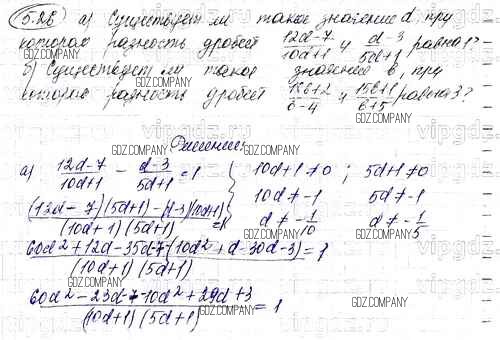 5.28 а) Существует ли такое значение d, при
котором разность дробей 12d-7/10d+1 и d-3/5d+1 равна 1?
GDZ.COMPANY
б) Существует ли такое значение b, при
котором разность дробей 18b+2/b-4 и 15b+1/b+5 равна 3?
GDZ.COMPANY
Решение:
GDZ.COMPANY
а) 12d-7/10d+1 - d-3/5d+1 = 1 { 10d+1≠0 ; 5d+1≠0
(12d-7)(5d+1)-(d-3)(10d+1)/(10d+1)(5d+1) = 1 10d≠-1 5d≠-1
d≠-1/10 d≠-1/5
60d²+12d-35d-7-(10d²+d-30d-3)/(10d+1)(5d+1) = 1
GDZ.COMPANY
60d²-23d-7-10d²+29d+3/(10d+1)(5d+1) = 1
GDZ.COMPANY